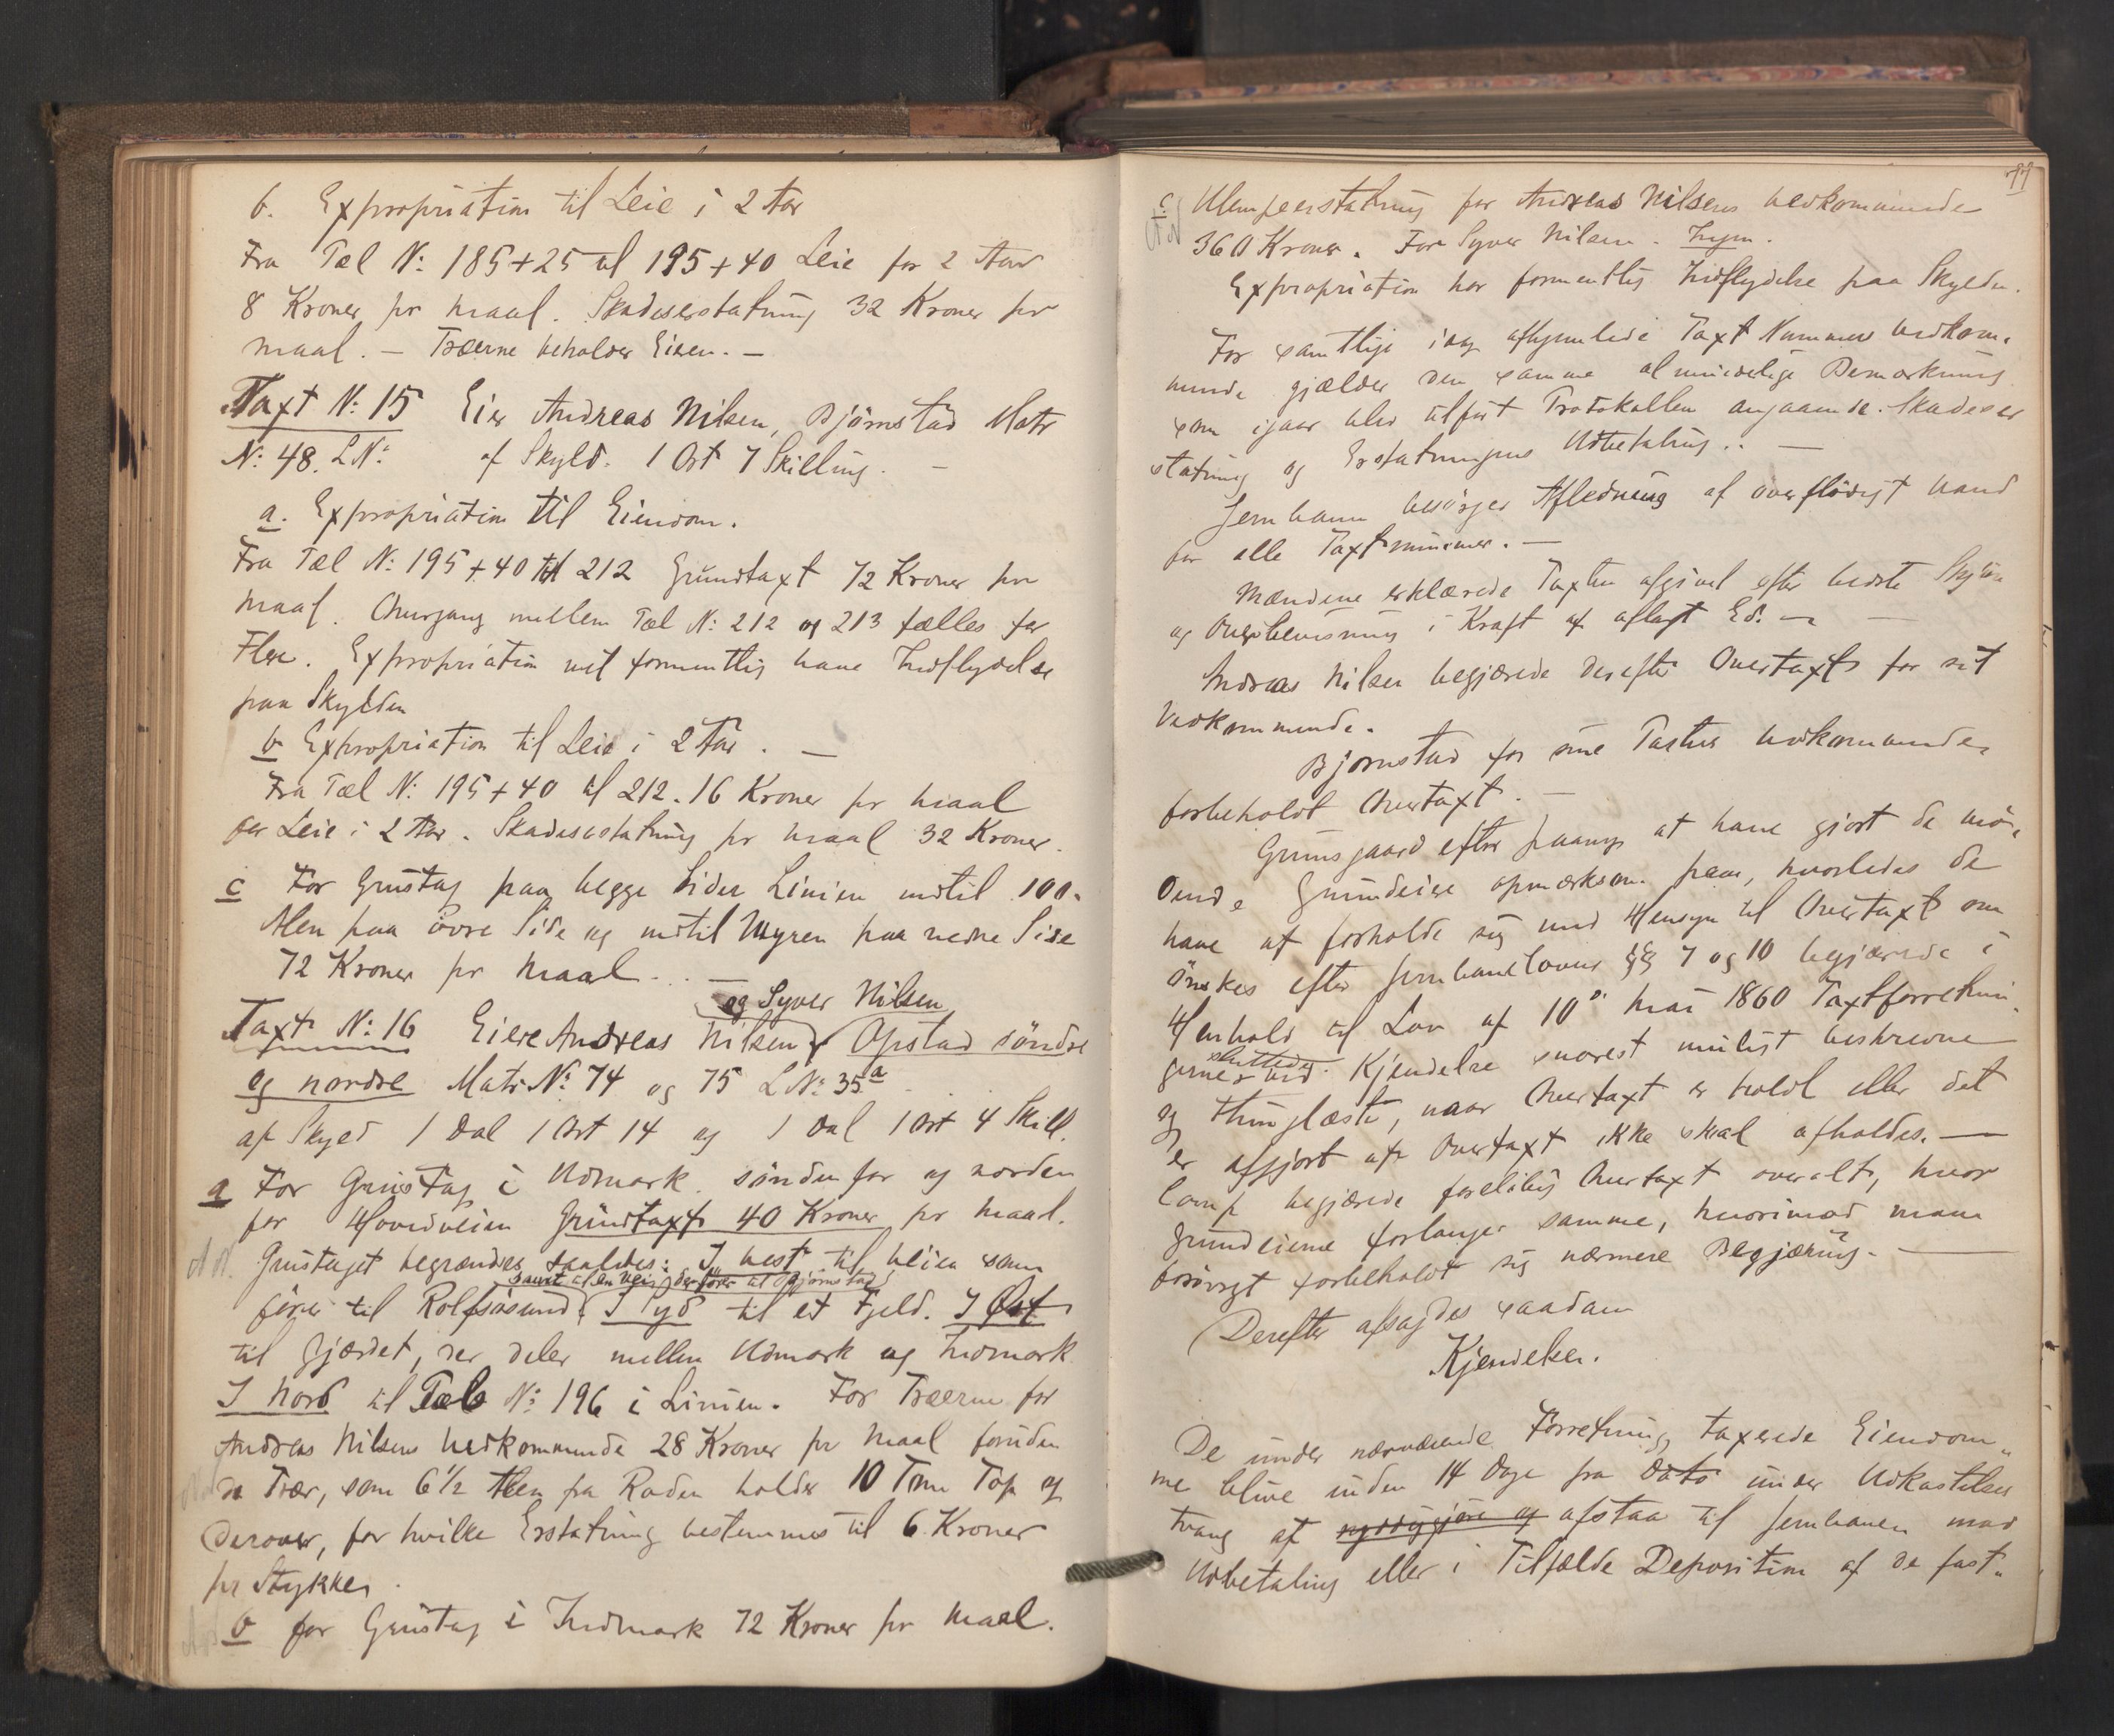 b. Expropriation til Leie i 2 Aar
Fra Pæl N: 185+25 til 195+40 Leie for 2 Aar
8 Kroner pr Maal. Skadeserstatning 32 Kroner pr
Maal. — Træerne beholder Eieren. —
Taxt N: 15 Eier Andreas Nilsen, Bjørnstad Matr
N: 48. L.N: af Skyld. 1 Ort 7 Skilling. —
a. Expropriation til Eiendom.
Fra Pæl N: 195+40 til 212 Grundtaxt 72 Kroner pr
Maal. Overgang mellem Pæl N: 212 og 213 fælles for
Flere. Expropriation vil formentlig have Indflydelse
paa Skylden
b Expropriation til Leie i 2 Aar. —
Fra Pæl N: 195+40 til 212. 16 Kroner pr Maal
for Leie i 2 Aar. Skadeserstatning pr Maal 32 Kroner.
c For Grustag paa begge Sider Linien indtil 100
Alen paa øvre Side og indtil Myren paa nedre Side
72 Kroner pr Maal. . —
og Syver Nilsen
Taxt N: 16 Eiere Andreas Nilsen Opstad søndre
og nordre Matr N: 74 og 75 L N: 35a
af Skyld 1 Dal 1 Ort 14 og 1 Dal 1 Ort 4 Skill.
a For Grustag i Udmark sønden for og norden
for Hovedveien Grundtaxt 40 Kroner pr Maal.
A N. Grustaget begrændses saaledes: I Vest til Veien som
samt af en Vei, der fører til Bjørnstad
fører til Rolfsøsund. I Syd til et Fjeld. I Øst
til Gjærdet, der deler mellem Udmark og Indmark
I Nord til Pæl N: 196 i Linien. For Træerne for
Andreas Nilsens Vedkommende 28 Kroner pr Maal foruden
de Trær, som 6½ Alen fra Roden holder 10 Tom Top og
derover, for hvilke Erstatning bestemmes til 6 Kroner
pr Stykke.
b for Grustag i Indmark 72 Kroner pr Maal.
77
c. Ulempeerstatning for Andreas Nilsens Vedkommende
A N
360 Kroner. For Syver Nilsen. Ingen.
Expropriation har formentlig Indflydelse paa Skylden.
For samtlige idag afhjemlede Taxt Nummere vedkom-
mende gjælder den samme almindelige Bemærkning
som igaar blev tilført Protokollen angaaende Skadeser
statning og Erstatningens Udbetaling. —
Jernbanen besørger Afledning af overflødigt Vand
for alle Taxtnummer. —
Mændene erklærede Taxten afgivet efter bedste Skjøn
og Overbevisning i Kraft af aflagt Ed. —
Andreas Nilsen begjærede derefter Overtaxt for sit
Vedkommende.
Bjørnstad for sine Parters Vedkommende
forbeholdt Overtaxt. —
Grimsgaard efter paany at have gjort de mø-
dende Grundeiere opmærksom paa, hvorledes de
have at forholde sig med Hensyn til Overtaxt om
ønskes efter Jernbanelovens §§ 7 og 10 begjærede i
Henhold til Lov af 10de Mai 1860 Taxtforretnin-
gerne sluttede ved Kjendelse snarest muligt beskrevne
og thinglæste, naar Overtaxt er holdt eller det
er afgjort at Overtaxt ikke skal afholdes. —
Camp begjærede foreløbig Overtaxt overalt, hvor
Grundeierne forlanger samme, hvorimod man
forøvrigt forbeholdt sig nærmere Begjæring. —
Derefter afsagdes saadan
Kjendelse.
De under nærværende Forretning taxerede Eiendom-
me blive inden 14 Dage fra Dato under Udkastelses
tvang at ryddiggjøre og afstaa til Jernbanen mod
Udbetaling eller i Tilfælde Deposition af de fast-